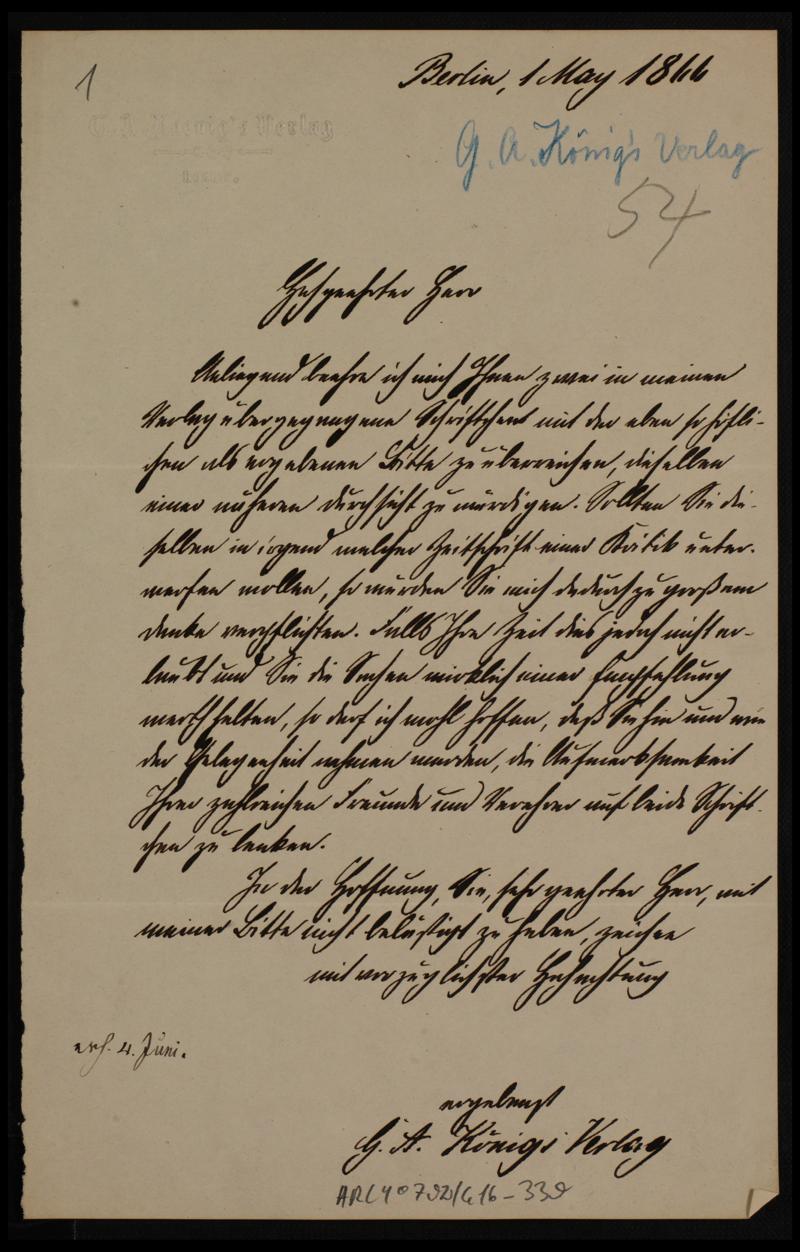 1
Berlin, 1 May 1866
G. A. Koenig's Verlag
G. A. König's Verlag
54
Hochgeehrter Herr
Anliegend beehre ich mich Ihnen zwei in meinen
Verlag übergegangene Schriftchen mit der eben so höfli-
chen als ergebenen Bitte zu überreichen, dieselben
einer näheren Durchsicht zu würdigen. Sollten Sie die-
selben in irgend welcher Zeitschrift einer Kritik unter-
werfen wollen, so würden Sie mich dadurch zu großem
Danke verpflichten. Falls Ihre Zeit dies jedoch nicht er-
laubt und Sie die Sachen wirklich einer Empfehlung
werth halten, so darf ich wohl hoffen, daß Sie hin und wie
der Gelegenheit nehmen werden, die Aufmerksamkeit
Ihrer zahlreichen Freunde und Verehrer auf beide Schrift-
chen zu lenken.
In der Hoffnung, Sie, sehr geehrter Herr, mit
meiner Bitte nicht belästigt zu haben, zeichne
mit vorzüglichster Hochachtung
erh. 4. Juni.
ergebenst
G. A. König's Verlag
ARC 4° 792/G16-339